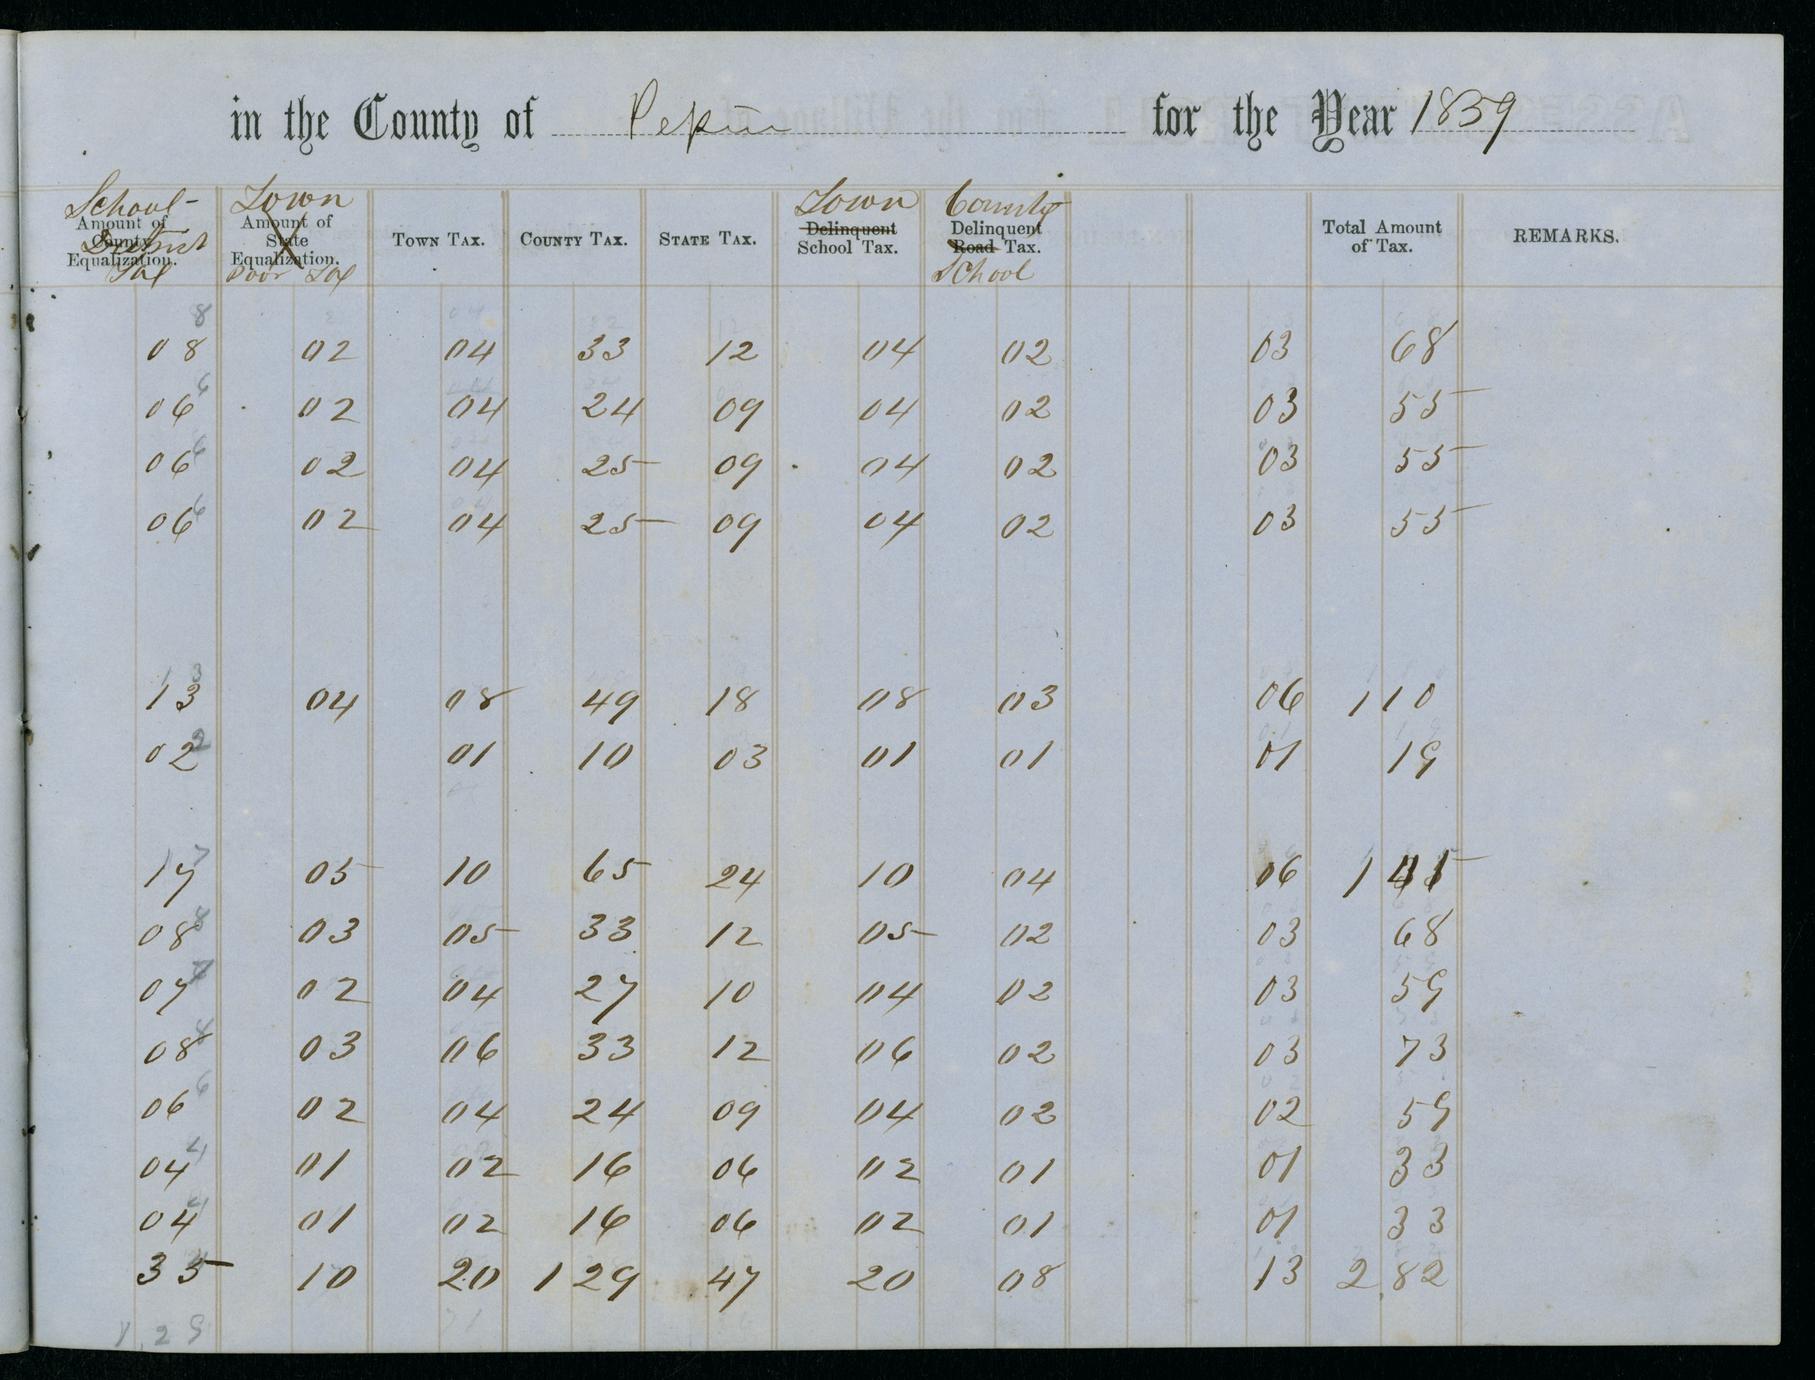 in the County of Pepin for the Year 1859
School- Town Town County
Amount of Amount of Delinquent Delinquent Total Amount
County District State TOWN TAX. COUNTY TAX. STATE TAX. School Tax. Road Tax. of Tax. REMARKS.
Equalization. Equalization. School
Tax Poor Tax
8
08 02 04 33 12 04 02 03 68
6
06 02 04 24 09 04 02 03 55
6
06 02 04 25 09 04 02 03 55
6
06 02 04 25 09 04 02 03 55
13
13 04 08 49 18 08 03 06 1 10
2
02 01 10 03 01 01 01 19
17
17 05 10 65 24 10 04 06 1
8
08 03 05 33 12 05 02 03 68
7
07 02 04 27 10 04 02 03 59
8
08 03 06 33 12 06 02 03 73
6
06 02 04 24 09 04 02 02 59
4
04 01 02 16 06 02 01 01 33
4
04 01 02 16 06 02 01 01 33
35 10 20 1 29 47 20 08 13 2 82
1,29